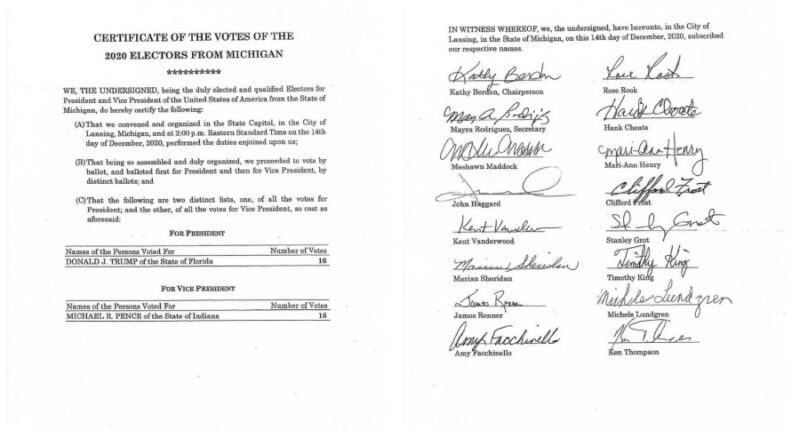 CERTIFICATE OF THE VOTES OF THE
2020 ELECTORS FROM MICHIGAN
**********
WE, THE UNDERSIGNED, being the duly elected and qualified Electors for
President and Vice President of the United States of America from the State of
Michigan, do hereby certify the following:
(A)That we convened and organized in the State Capitol, in the City of
Lansing, Michigan, and at 2:00 p.m. Eastern Standard Time on the 14th
day of December, 2020, performed the duties enjoined upon us;
(B)That being so assembled and duly organized, we proceeded to vote by
ballot, and balloted first for President and then for Vice President, by
distinct ballots; and
(C)That the following are two distinct lists, one, of all the votes for
President; and the other, of all the votes for Vice President, so cast as
aforesaid:
FOR PRESIDENT
Names of the Persons Voted For Number of Votes
DONALD J. TRUMP of the State of Florida 16
FOR VICE PRESIDENT
Names of the Persons Voted For Number of Votes
MICHAEL R. PENCE of the State of Indiana 16
IN WITNESS WHEREOF, we, the undersigned, have hereunto, in the City of
Lansing, in the State of Michigan, on this 14th day of December, 2020, subscribed
our respective names.
Kathy Berden Rose Rook
Kathy Berden, Chairperson Rose Rook
Mayra Rodriguez Hank Choate
Mayra Rodrigues, Secretary Hank Choate
Meshawn Maddock Mari-Ann Henry
Meshawn Maddock Mari-Ann Henry
Clifford Frost
John Haggard Clifford Frost
Kent Vanderwood Stanley Grot
Kent Vanderwood Stanley Grot
Marian Sheridan Timothy King
Marian Sheridan Timothy King
James Renner Michele Lundgren
James Renner Michele Lundgren
Amy Facchinello Ken Thompson
Amy Facchinello Ken Thompson